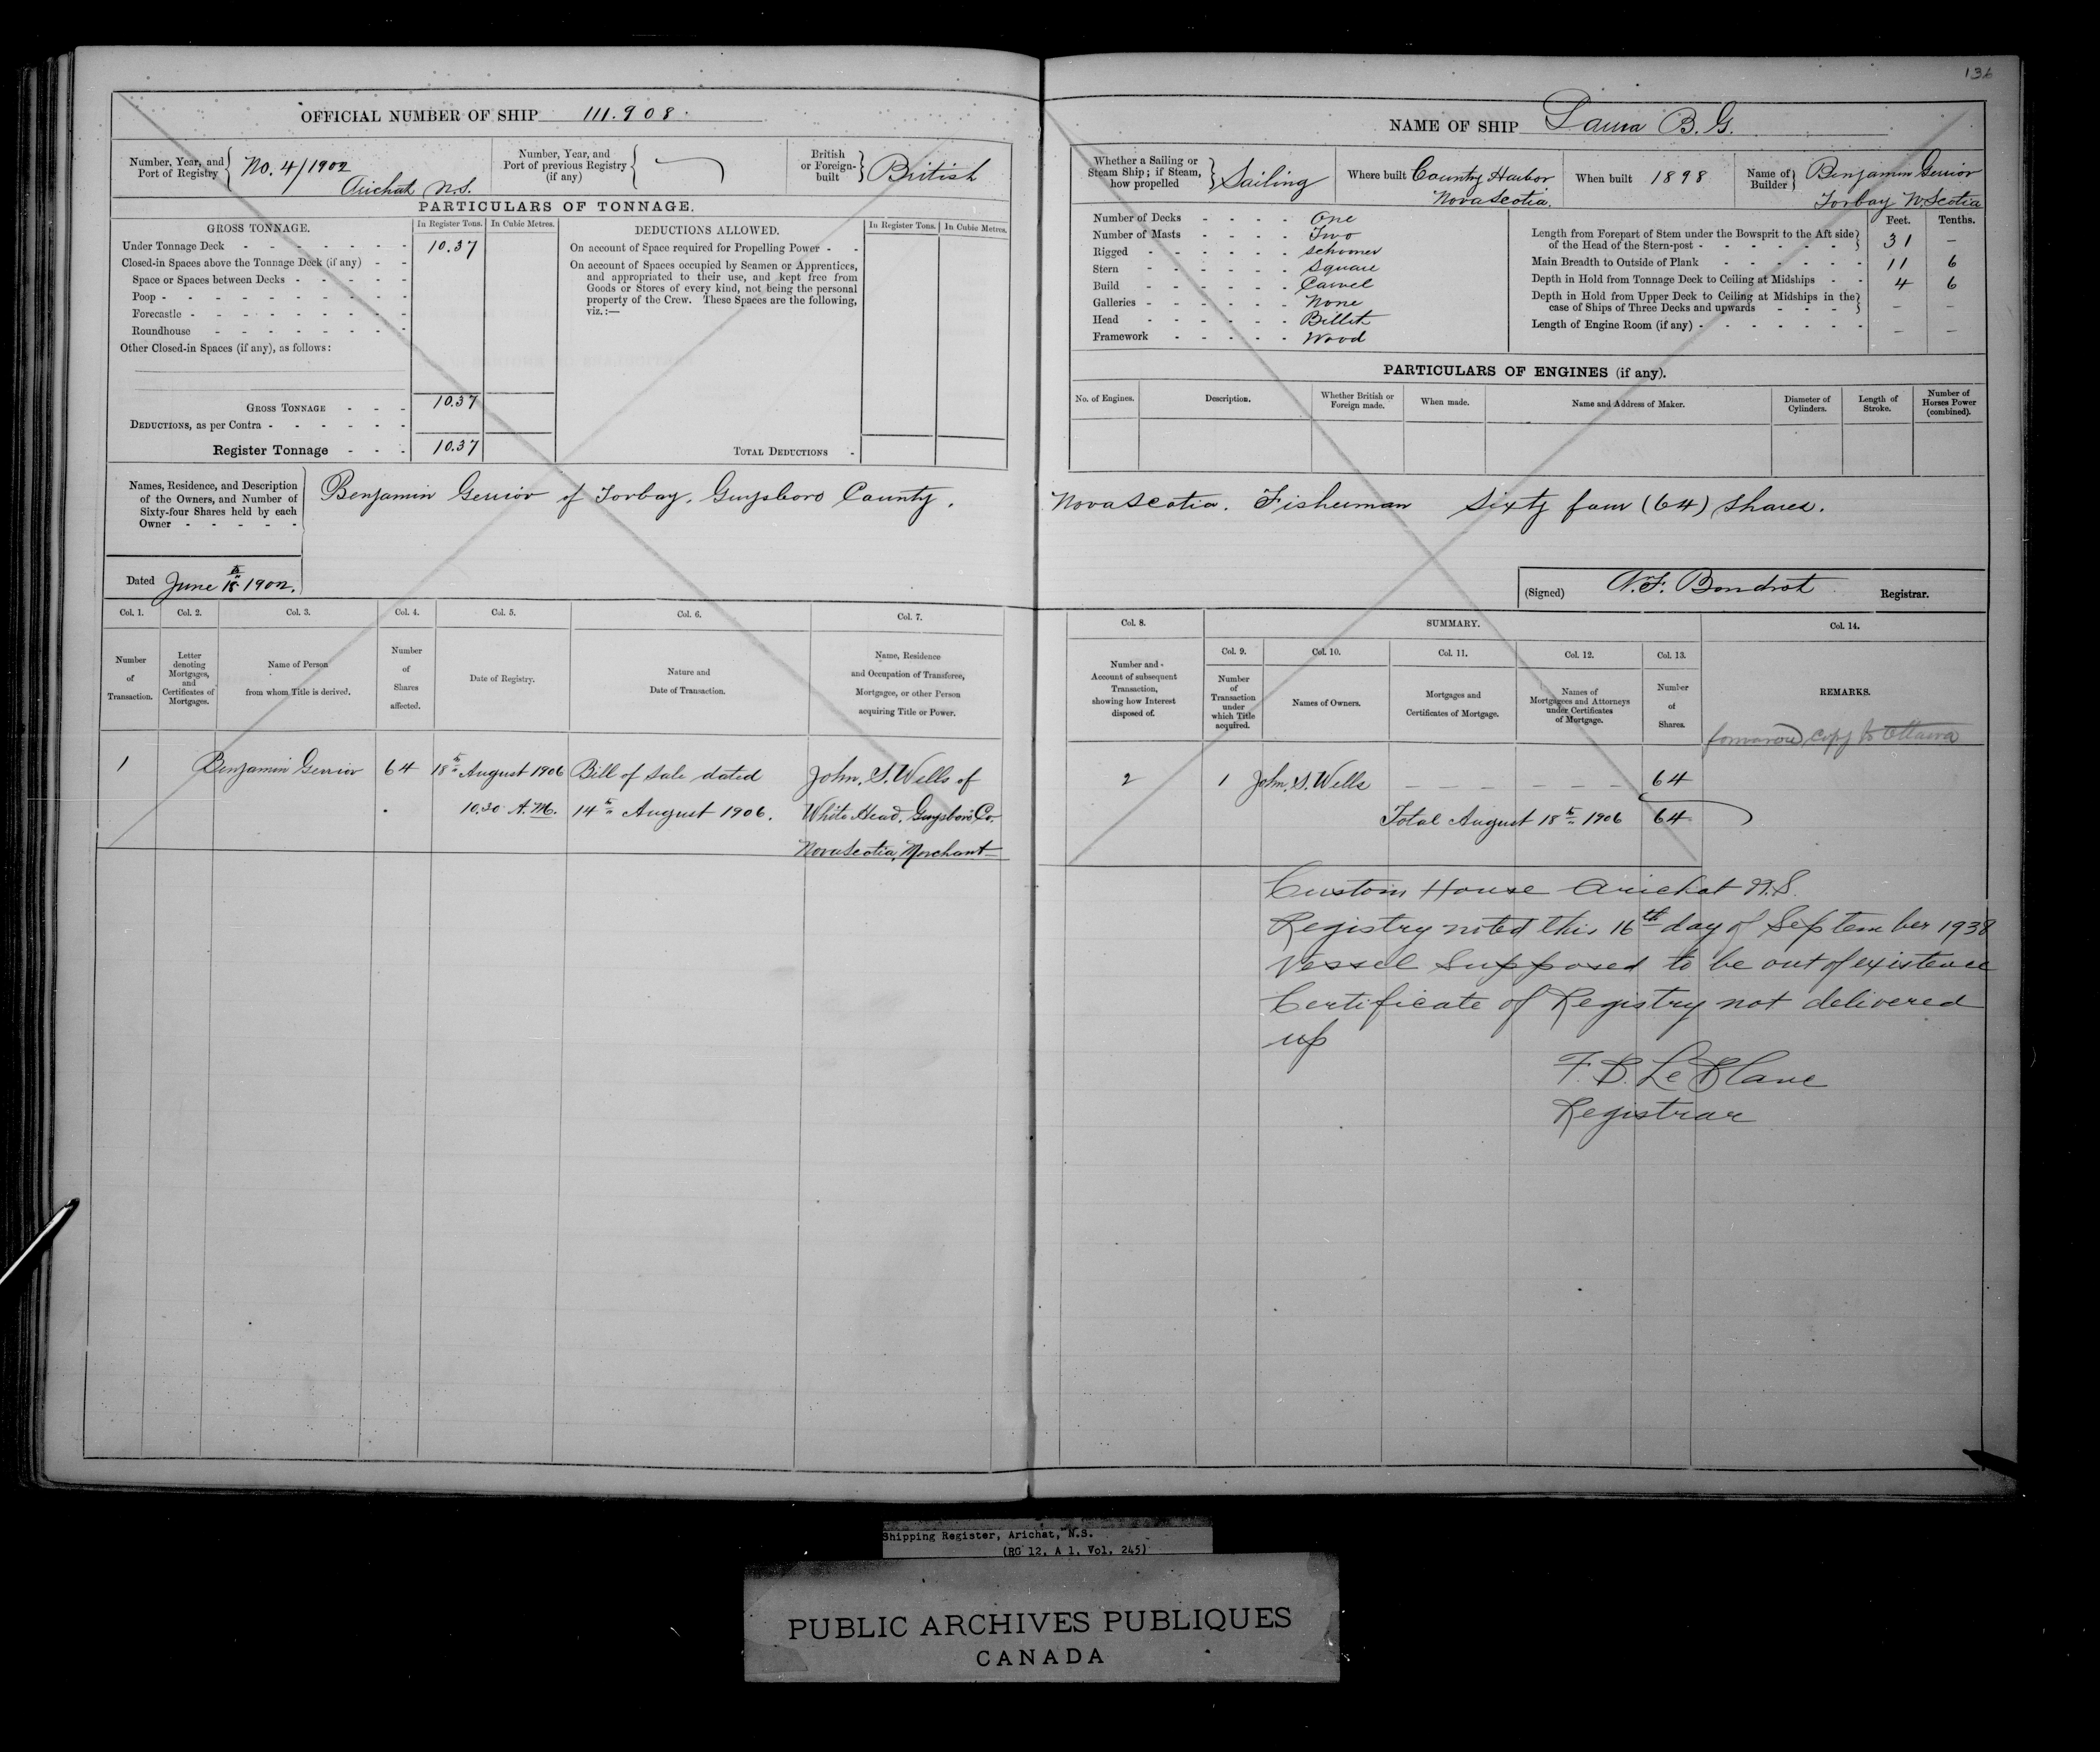 136
OFFICIAL NUMBER OF SHIP 111.908.
Number, Year, and Port of Registry No. 4/1902 Arichat N.S.
Number, Year, and Port of previous Registry (if any)
British or Foreign-built British
PARTICULARS OF TONNAGE.
GROSS TONNAGE. In Register Tons. In Cubic Metres.
Under Tonnage Deck - - - - - - - 10.37
Closed-in Spaces above the Tonnage Deck (if any) - -
Space or Spaces between Decks - - - - -
Poop - - - - - - - - - -
Forecastle - - - - - - - - -
Roundhouse - - - - - - - -
Other Closed-in Spaces (if any), as follows:
GROSS TONNAGE - - - 10.37
DEDUCTIONS, as per Contra - - - - - -
Register Tonnage - - - 10.37
DEDUCTIONS ALLOWED. In Register Tons. In Cubic Metres.
On account of Space required for Propelling Power - -
On account of Spaces occupied by Seamen or Apprentices,
and appropriated to their use, and kept free from
Goods or Stores of every kind, not being the personal
property of the Crew. These Spaces are the following,
viz.:—
TOTAL DEDUCTIONS -
NAME OF SHIP Laura B. G.
Whether a Sailing or Steam Ship; if Steam, how propelled Sailing
Where built Country Harbor Nova Scotia.
When built 1898
Name of Builder Benjamin Gerrior Torbay N. Scotia
Number of Decks - - - - One
Number of Masts - - - - Two
Rigged - - - - - - schooner
Stern - - - - - - Square
Build - - - - - - Carvel
Galleries - - - - - - None
Head - - - - - - Billet
Framework - - - - - Wood
Feet. Tenths.
Length from Forepart of Stem under the Bowsprit to the Aft side
of the Head of the Stern-post - - - - - - - 31 –
Main Breadth to Outside of Plank - - - - - - 11 6
Depth in Hold from Tonnage Deck to Ceiling at Midships - - 4 6
Depth in Hold from Upper Deck to Ceiling at Midships in the
case of Ships of Three Decks and upwards - - - - – –
Length of Engine Room (if any) - - - - - - - – –
PARTICULARS OF ENGINES (if any).
No. of Engines. Description. Whether British or Foreign made. When made. Name and Address of Maker. Diameter of Cylinders. Length of Stroke. Number of Horses Power (combined).
Names, Residence, and Description
of the Owners, and Number of
Sixty-four Shares held by each
Owner - - - - -
Benjamin Gerrior of Torbay. Guysboro County. Nova Scotia. Fisherman Sixty four (64) Shares.
Dated June 18th 1902.
(Signed) N.F. Boudrot Registrar.
Col. 1. Col. 2. Col. 3. Col. 4. Col. 5. Col. 6. Col. 7.
Number of Transaction.
Letter denoting Mortgages, and Certificates of Mortgages.
Name of Person from whom Title is derived.
Number of Shares affected.
Date of Registry.
Nature and Date of Transaction.
Name, Residence and Occupation of Transferee, Mortgagee, or other Person acquiring Title or Power.
Col. 8. SUMMARY. Col. 14.
Col. 9. Col. 10. Col. 11. Col. 12. Col. 13.
Number and Account of subsequent Transaction, showing how Interest disposed of.
Number of Transaction under which Title acquired.
Names of Owners.
Mortgages and Certificates of Mortgage.
Names of Mortgagees and Attorneys under Certificates of Mortgage.
Number of Shares.
REMARKS.
1 Benjamin Gerrior 64 18th August 1906 Bill of Sale dated John. S. Wells of
10.30 A.M. 14th August 1906. White Head. Guysboro Co.
Nova Scotia, Merchant
copy to Ottawa
2 1 John. S. Wells – – – – – – 64
Total August 18th 1906 64
Custom House Arichat N.S.
Registry noted this 16th day of September 1938
Vessel Supposed to be out of existence
Certificate of Registry not delivered
up
F. B. Le Blanc
Registrar
Shipping Register, Arichat, N.S.
(RG 12, A 1, Vol. 245)
PUBLIC ARCHIVES PUBLIQUES
CANADA